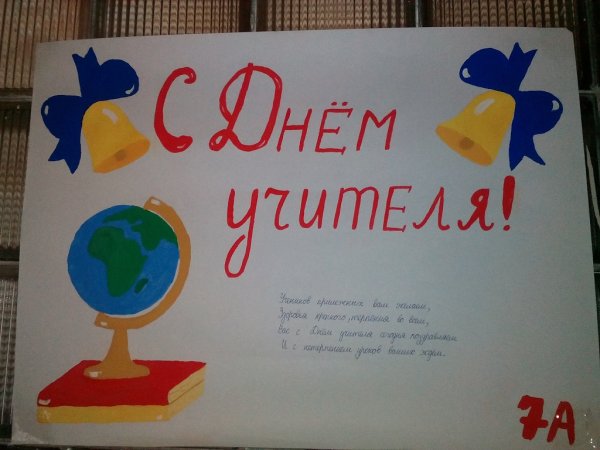 С Днём
учителя!
Учеников прилежных вам желаем,
Здоровья крепкого, терпения во всём,
Вас с Днём учителя сегодня поздравляем
И с нетерпением уроков ваших ждём.
7А